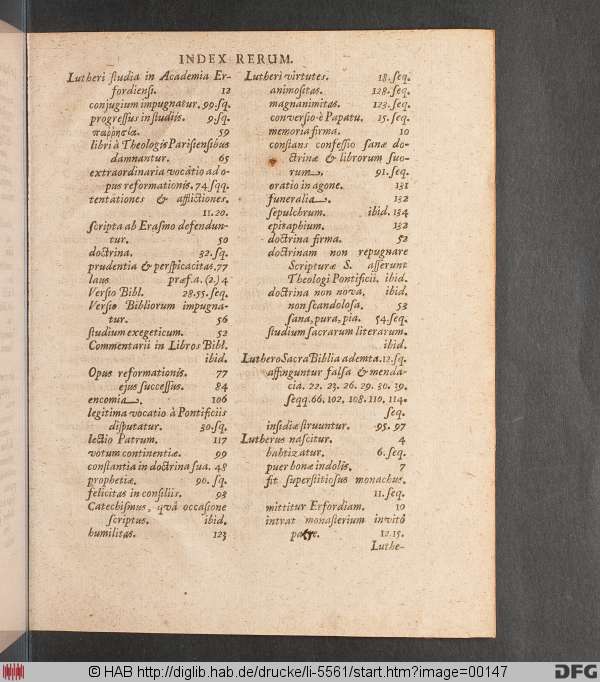 INDEX RERUM.
Lutheri ſtudia in Academia Er-
fordienſi. 12
conjugium impugnatur. 99.ſq.
progreſſus in ſtudiis. 9.ſq.
παρρησία. 59
libri à Theologis Pariſienſibus
damnantur. 65
extraordinaria vocatio ad o-
pus reformationis. 74.ſqq.
tentationes & afflictiones.
11.20.
ſcripta ab Eraſmo defendun-
tur. 50
doctrina. 32.ſq.
prudentia & perſpicacitas. 77
laus præf. a. (2.) 4
Verſio Bibl. 28.55.ſeq.
Verſio Bibliorum impugna-
tur. 56
ſtudium exegeticum. 52
Commentarii in Libros Bibl.
ibid.
Opus reformationis. 77
ejus ſucceſſus. 84
encomia. 106
legitima vocatio à Pontificiis
diſputatur. 30.ſq.
lectio Patrum. 117
votum continentiæ. 99
conſtantia in doctrina ſua. 48
prophetiæ. 90. ſq.
felicitas in conſiliis. 93
Catechiſmus, quâ occaſione
ſcriptus. ibid.
humilitas. 123
Lutheri virtutes. 18.ſeq.
animoſitas. 128.ſeq.
magnanimitas. 123.ſeq.
converſio è Papatu. 15.ſeq.
memoria firma. 10
conſtans confeſſio ſanæ do-
ctrinæ & librorum ſuo-
rum. 91.ſeq.
oratio in agone. 131
funeralia. 132
ſepulchrum. ibid. 134
epitaphium. 132
doctrina firma. 52
doctrinam non repugnare
Scripturæ S. aſſerunt
Theologi Pontificii. ibid.
doctrina non nova. ibid.
non ſcandoloſa. 53
ſana, pura, pia. 54.ſeq.
ſtudium ſacrarum literarum.
ibid.
Luthero Sacra Biblia ademta. 12.ſq.
affinguntur falſa & menda-
cia. 22. 23. 26. 29. 30. 39.
ſeqq. 66. 102. 108. 110. 114.
ſeq.
inſidiæ ſtruuntur. 95. 97
Lutherus naſcitur. 4
babtizatur. 6.ſeq.
puer bonæ indolis. 7
fit ſuperſtitioſus monachus.
11.ſeq.
mittitur Erfordiam. 10
intrat monaſterium invitô
patre. 12.15.
Luthe-
© HAB http://diglib.hab.de/drucke/li-5561/start.htm?image=00147
DFG